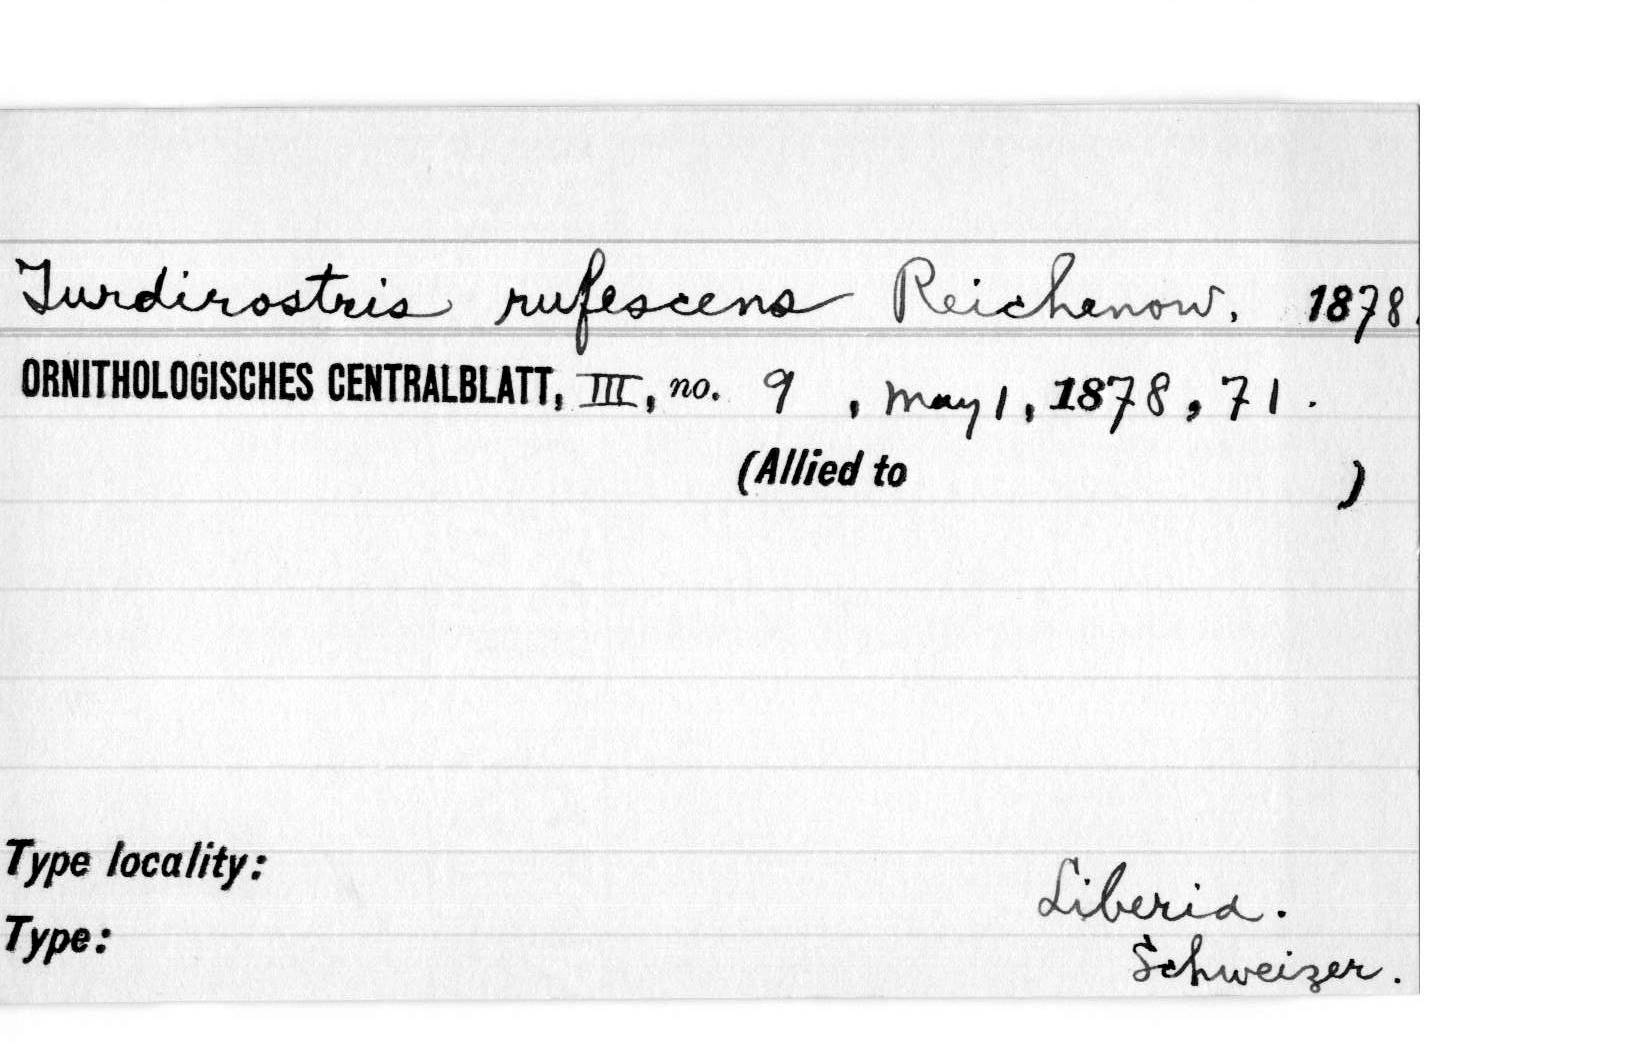 Turdirostris rufescens Reichenow. 1878.
ORNITHOLOGISCHES CENTRALBLATT, III, no. 9 , May 1, 1878, 71.
(Allied to )
Type locality:
Liberia.
Type:
Schweizer.